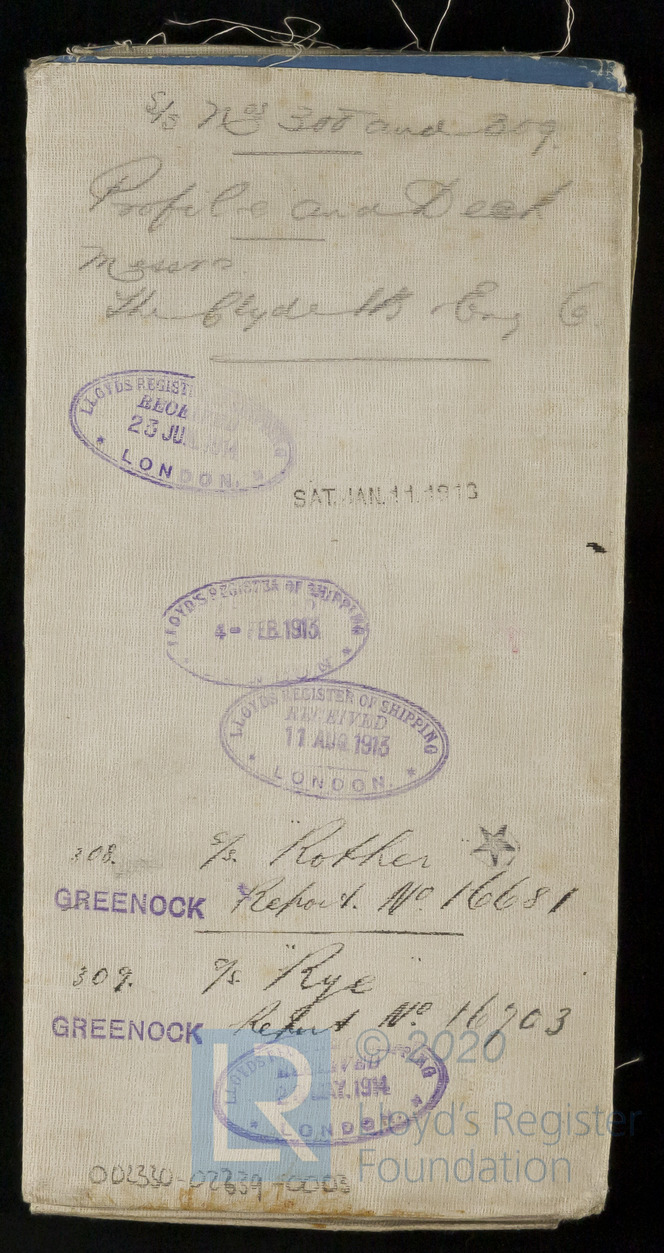 S/S Nos 308 and 309.
Profile and Deck
Messrs
The Clyde SB & Eng Co.
LLOYDS REGISTER OF SHIPPING
RECEIVED
23 JUL 1914
LONDON.
SAT. JAN. 11. 1913
LLOYD'S REGISTER OF SHIPPING
4 - FEB. 1913
LLOYDS REGISTER OF SHIPPING
RECEIVED
11 AUG. 1913
LONDON.
308. S/s. "Rother"
GREENOCK Report. No. 16681
309. S/s. "Rye"
GREENOCK Report No. 16703
LLOYDS SHIPPING
RECEIVED
MAY. 1914
LONDON.
LR © 2020
Lloyd's Register
Foundation
002330-02239-0003